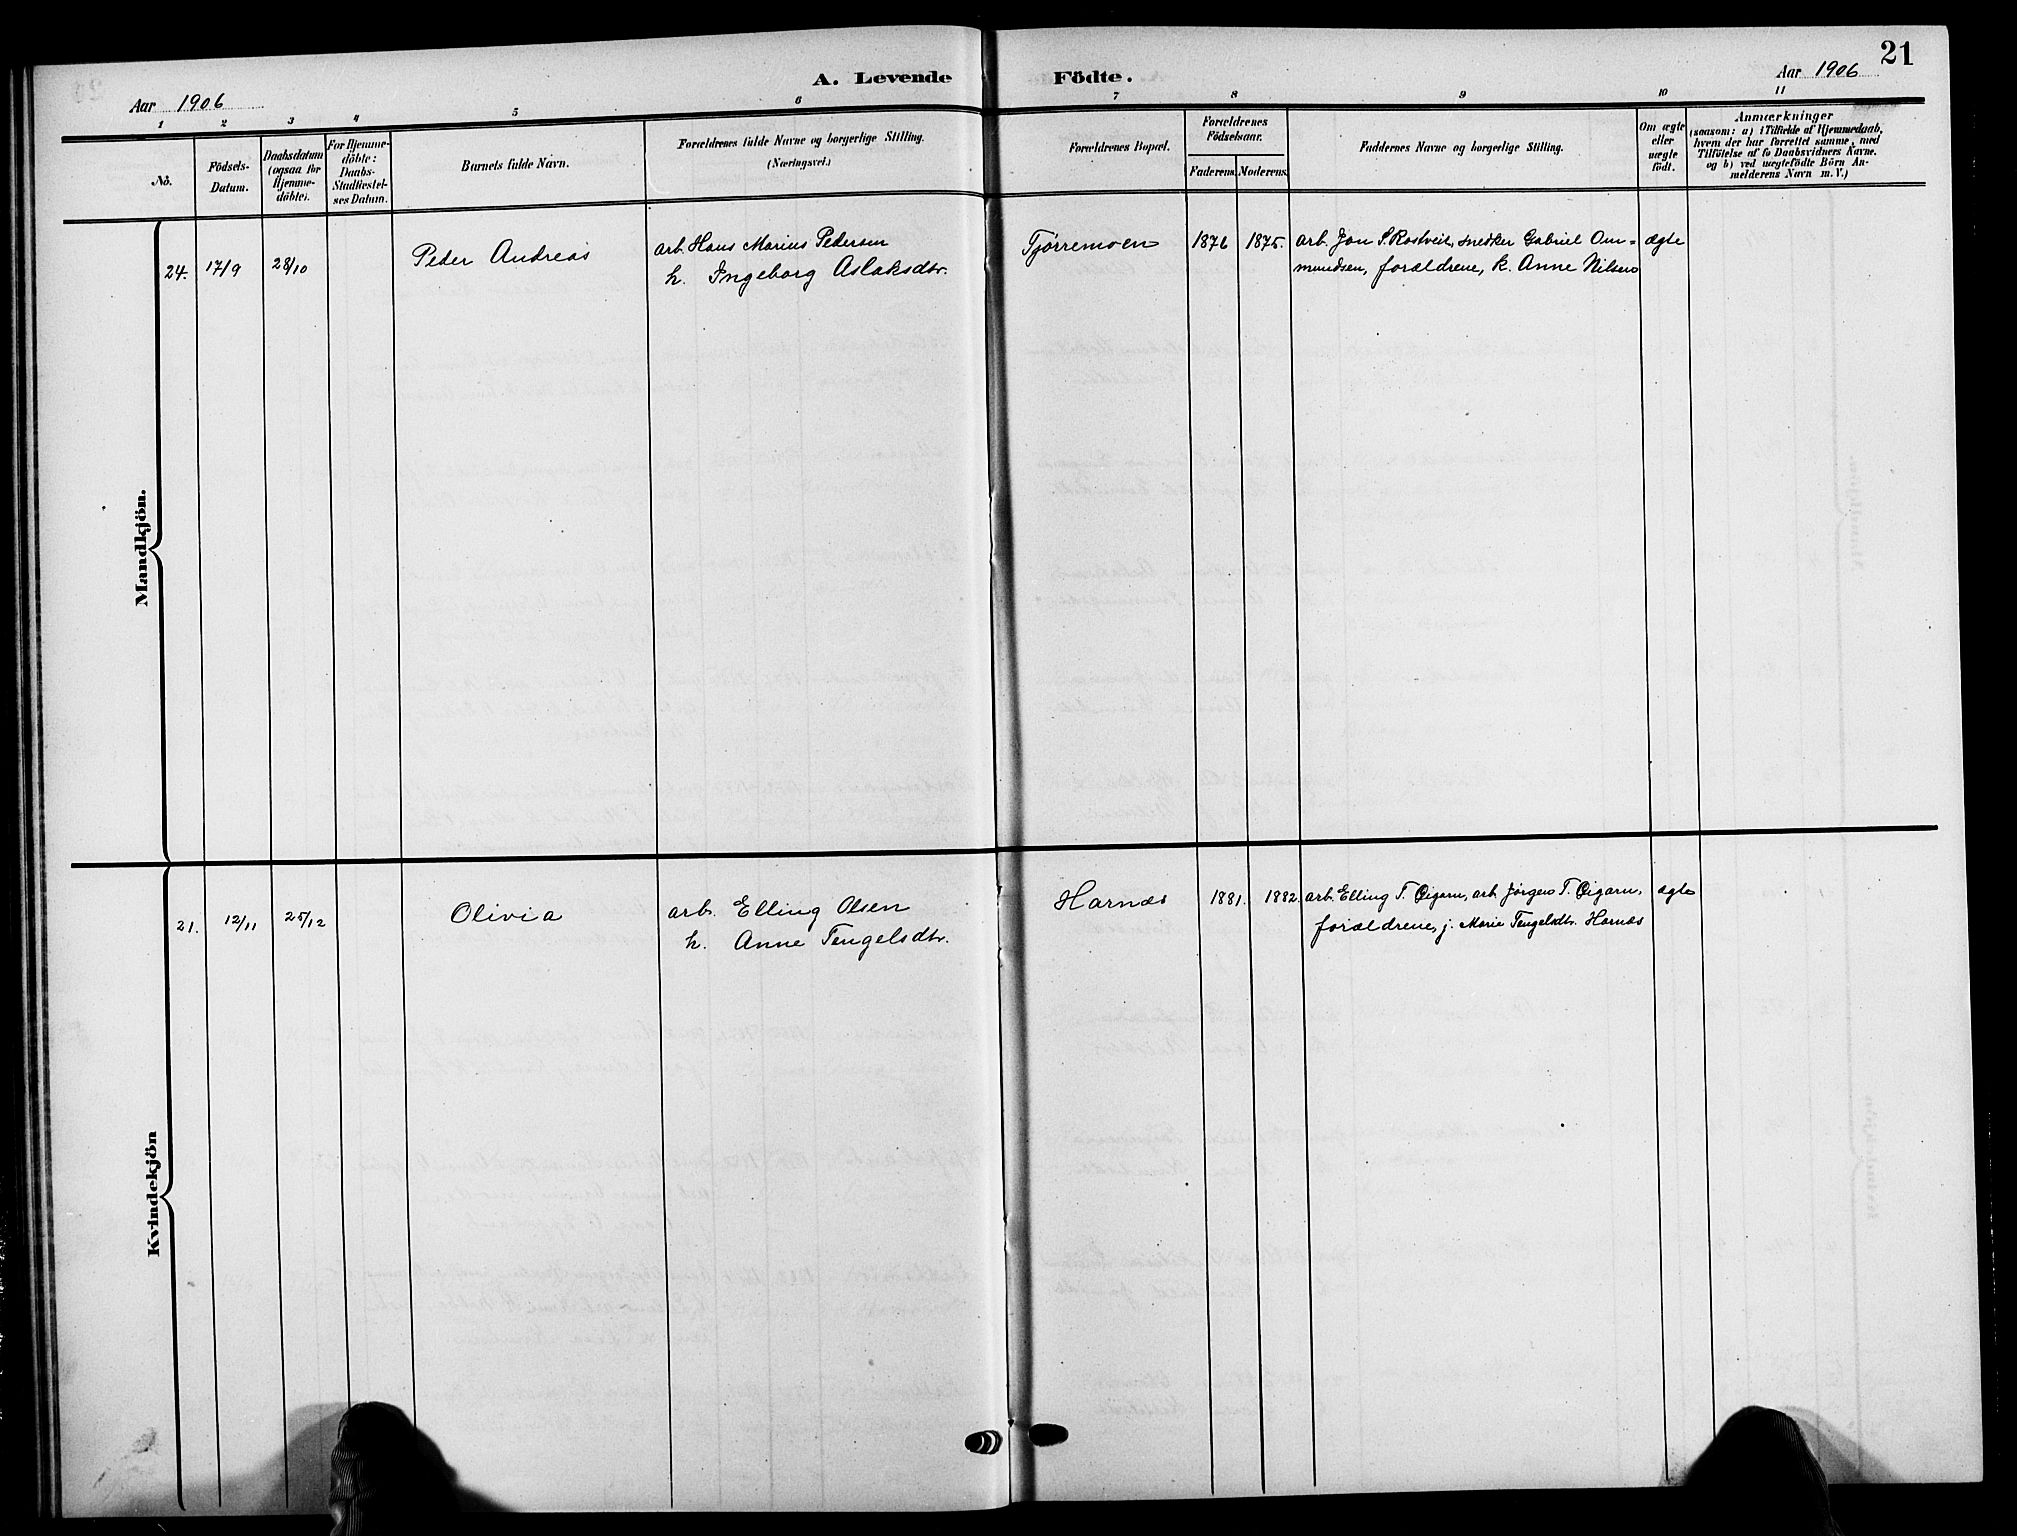 21
A. Levende Födte.
Aar 1906
Aar 1906
1 2 3 4 5 6 7 8 9 10 11
No.
Födsels-
Datum.
Daabsdatum
(ogsaa for
Hjemme-
döbte).
For Hjemme-
döbte:
Daabs-
Stadfæstel-
ses Datum.
Barnets fulde Navn.
Forældrenes fulde Navne og borgerlige Stilling.
(Næringsvei.)
Forældrenes Bopæl.
Forældrenes
Födselsaar.
Faderens. Moderens.
Faddernes Navne og borgerlige Stilling.
Om ægte
eller
uægte
födt.
Anmærkninger
(saasom: a) i Tilfælde af Hjemmedaab,
hvem der har forrettet samme, med
Tilföielse af to Daabsvidners Navne.
og b) ved uægtefödte Börn An-
melderens Navn m. V.)
Mandkjön.
24. 17/9 28/10 Peder Andreas
arb. Hans Marius Pedersen
h. Ingeborg Aslaksdtr.
Tjørremoen 1876 1875.
arb. Jon S. Rostveit, snedker Gabriel Om=
mundsen, forældrene, k. Anne Nilsen
ægte
Kvindekjön
21. 12/11 25/12 Olivia
arb. Elling Olsen
h. Anne Tengelsdtr.
Harnæs 1881. 1882.
arb. Elling T. Eigarn, arb. Jørgen T. Eigarn,
forældrene, j. Marie Tengelsdtr. Harnæs
ægte